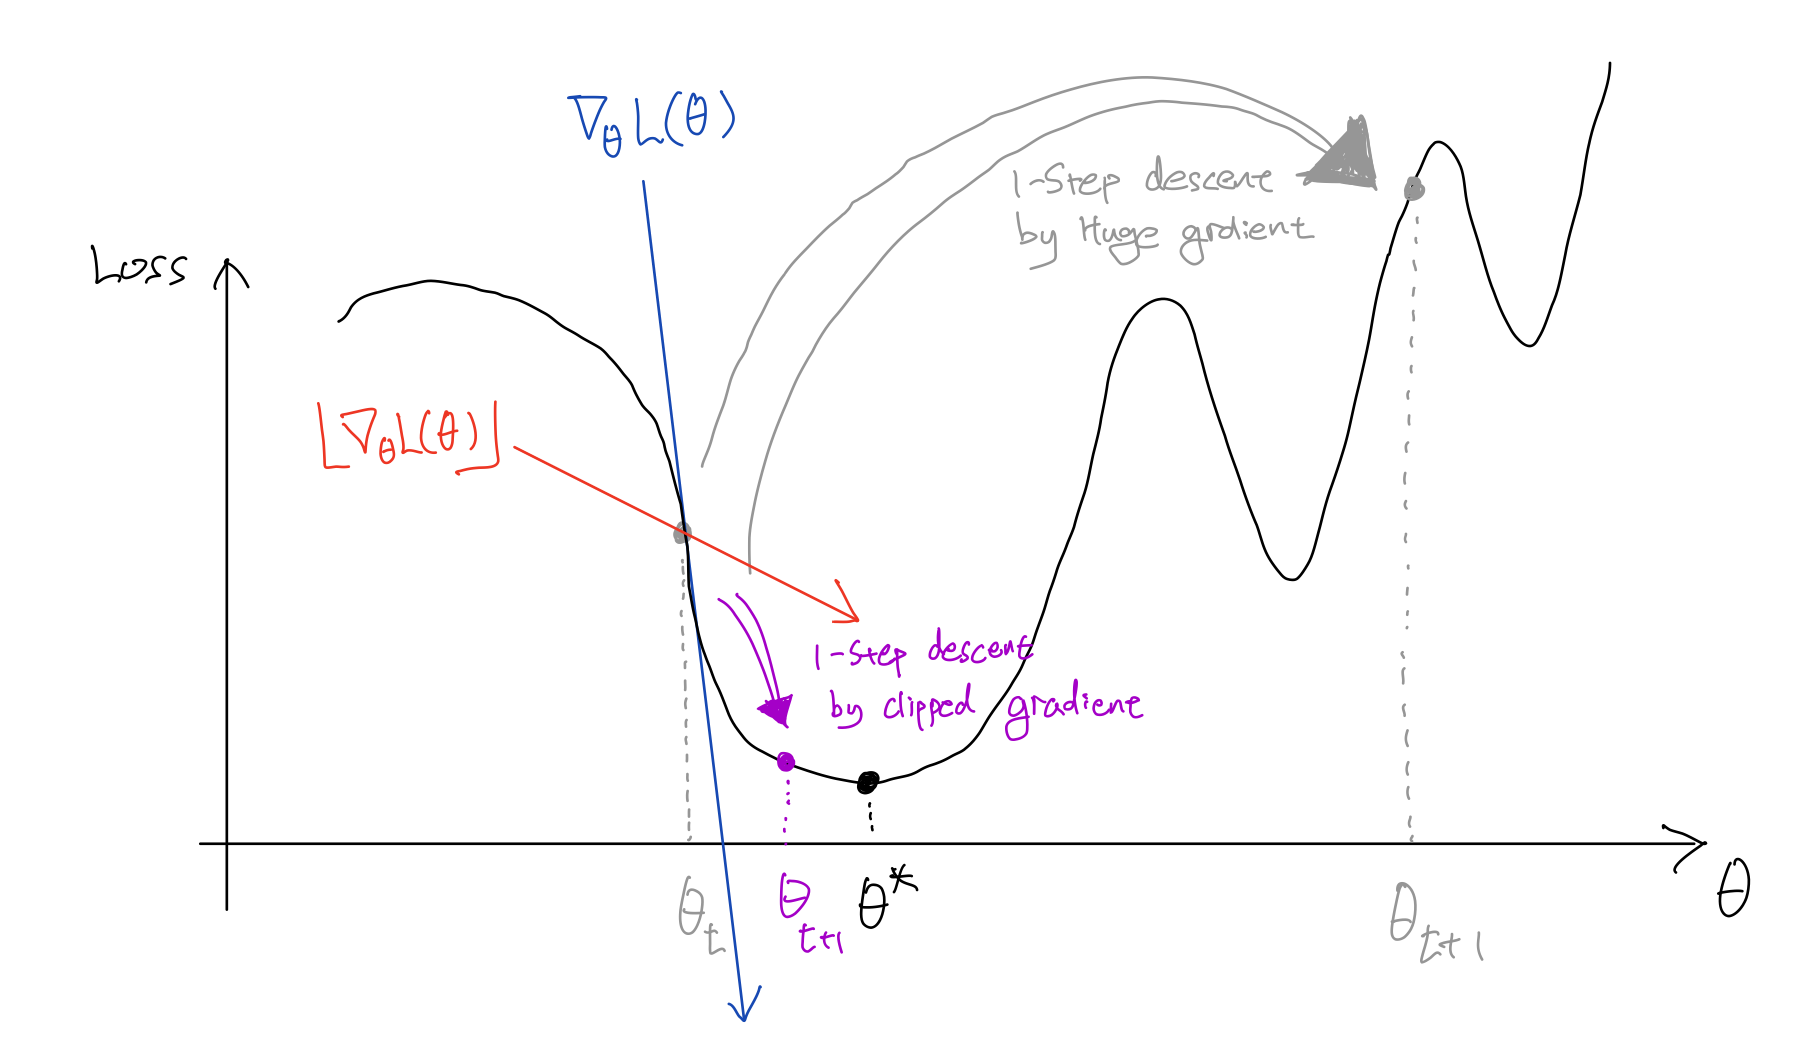 ∇_θ L(θ)
1-Step descent
by Huge grdient
Loss
⌊∇_θ L(θ)⌋
1-Step descent
by clipped gradient
θ_t
θ_{t+1}
θ*
θ_{t+1}
θ